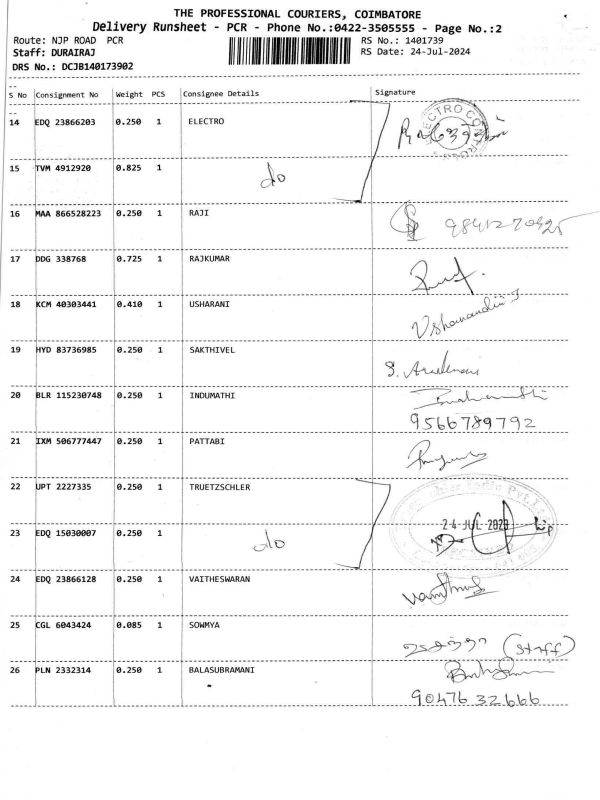 THE PROFESSIONAL COURIERS, COIMBATORE
Delivery Runsheet - PCR - Phone No.:0422-3505555 - Page No.:2
Route: NJP ROAD PCR
RS No.: 1401739
Staff: DURAIRAJ
RS Date: 24-Jul-2024
DRS No.: DCJB140173902
S No Consignment No Weight PCS Consignee Details Signature
14 EDQ 23866203 0.250 1 ELECTRO
15 TVM 4912920 0.825 1 do
16 MAA 866528223 0.250 1 RAJI
17 DDG 338768 0.725 1 RAJKUMAR
18 KCM 40303441 0.410 1 USHARANI
19 HYD 83736985 0.250 1 SAKTHIVEL
20 BLR 115230748 0.250 1 INDUMATHI
9566789792
21 IXM 506777447 0.250 1 PATTABI
22 UPT 2227335 0.250 1 TRUETZSCHLER
24 JUL
23 EDQ 15030007 0.250 1 do
24 EDQ 23866128 0.250 1 VAITHESWARAN
25 CGL 6043424 0.085 1 SOWMYA
(staff)
26 PLN 2332314 0.250 1 BALASUBRAMANI
90476 32666